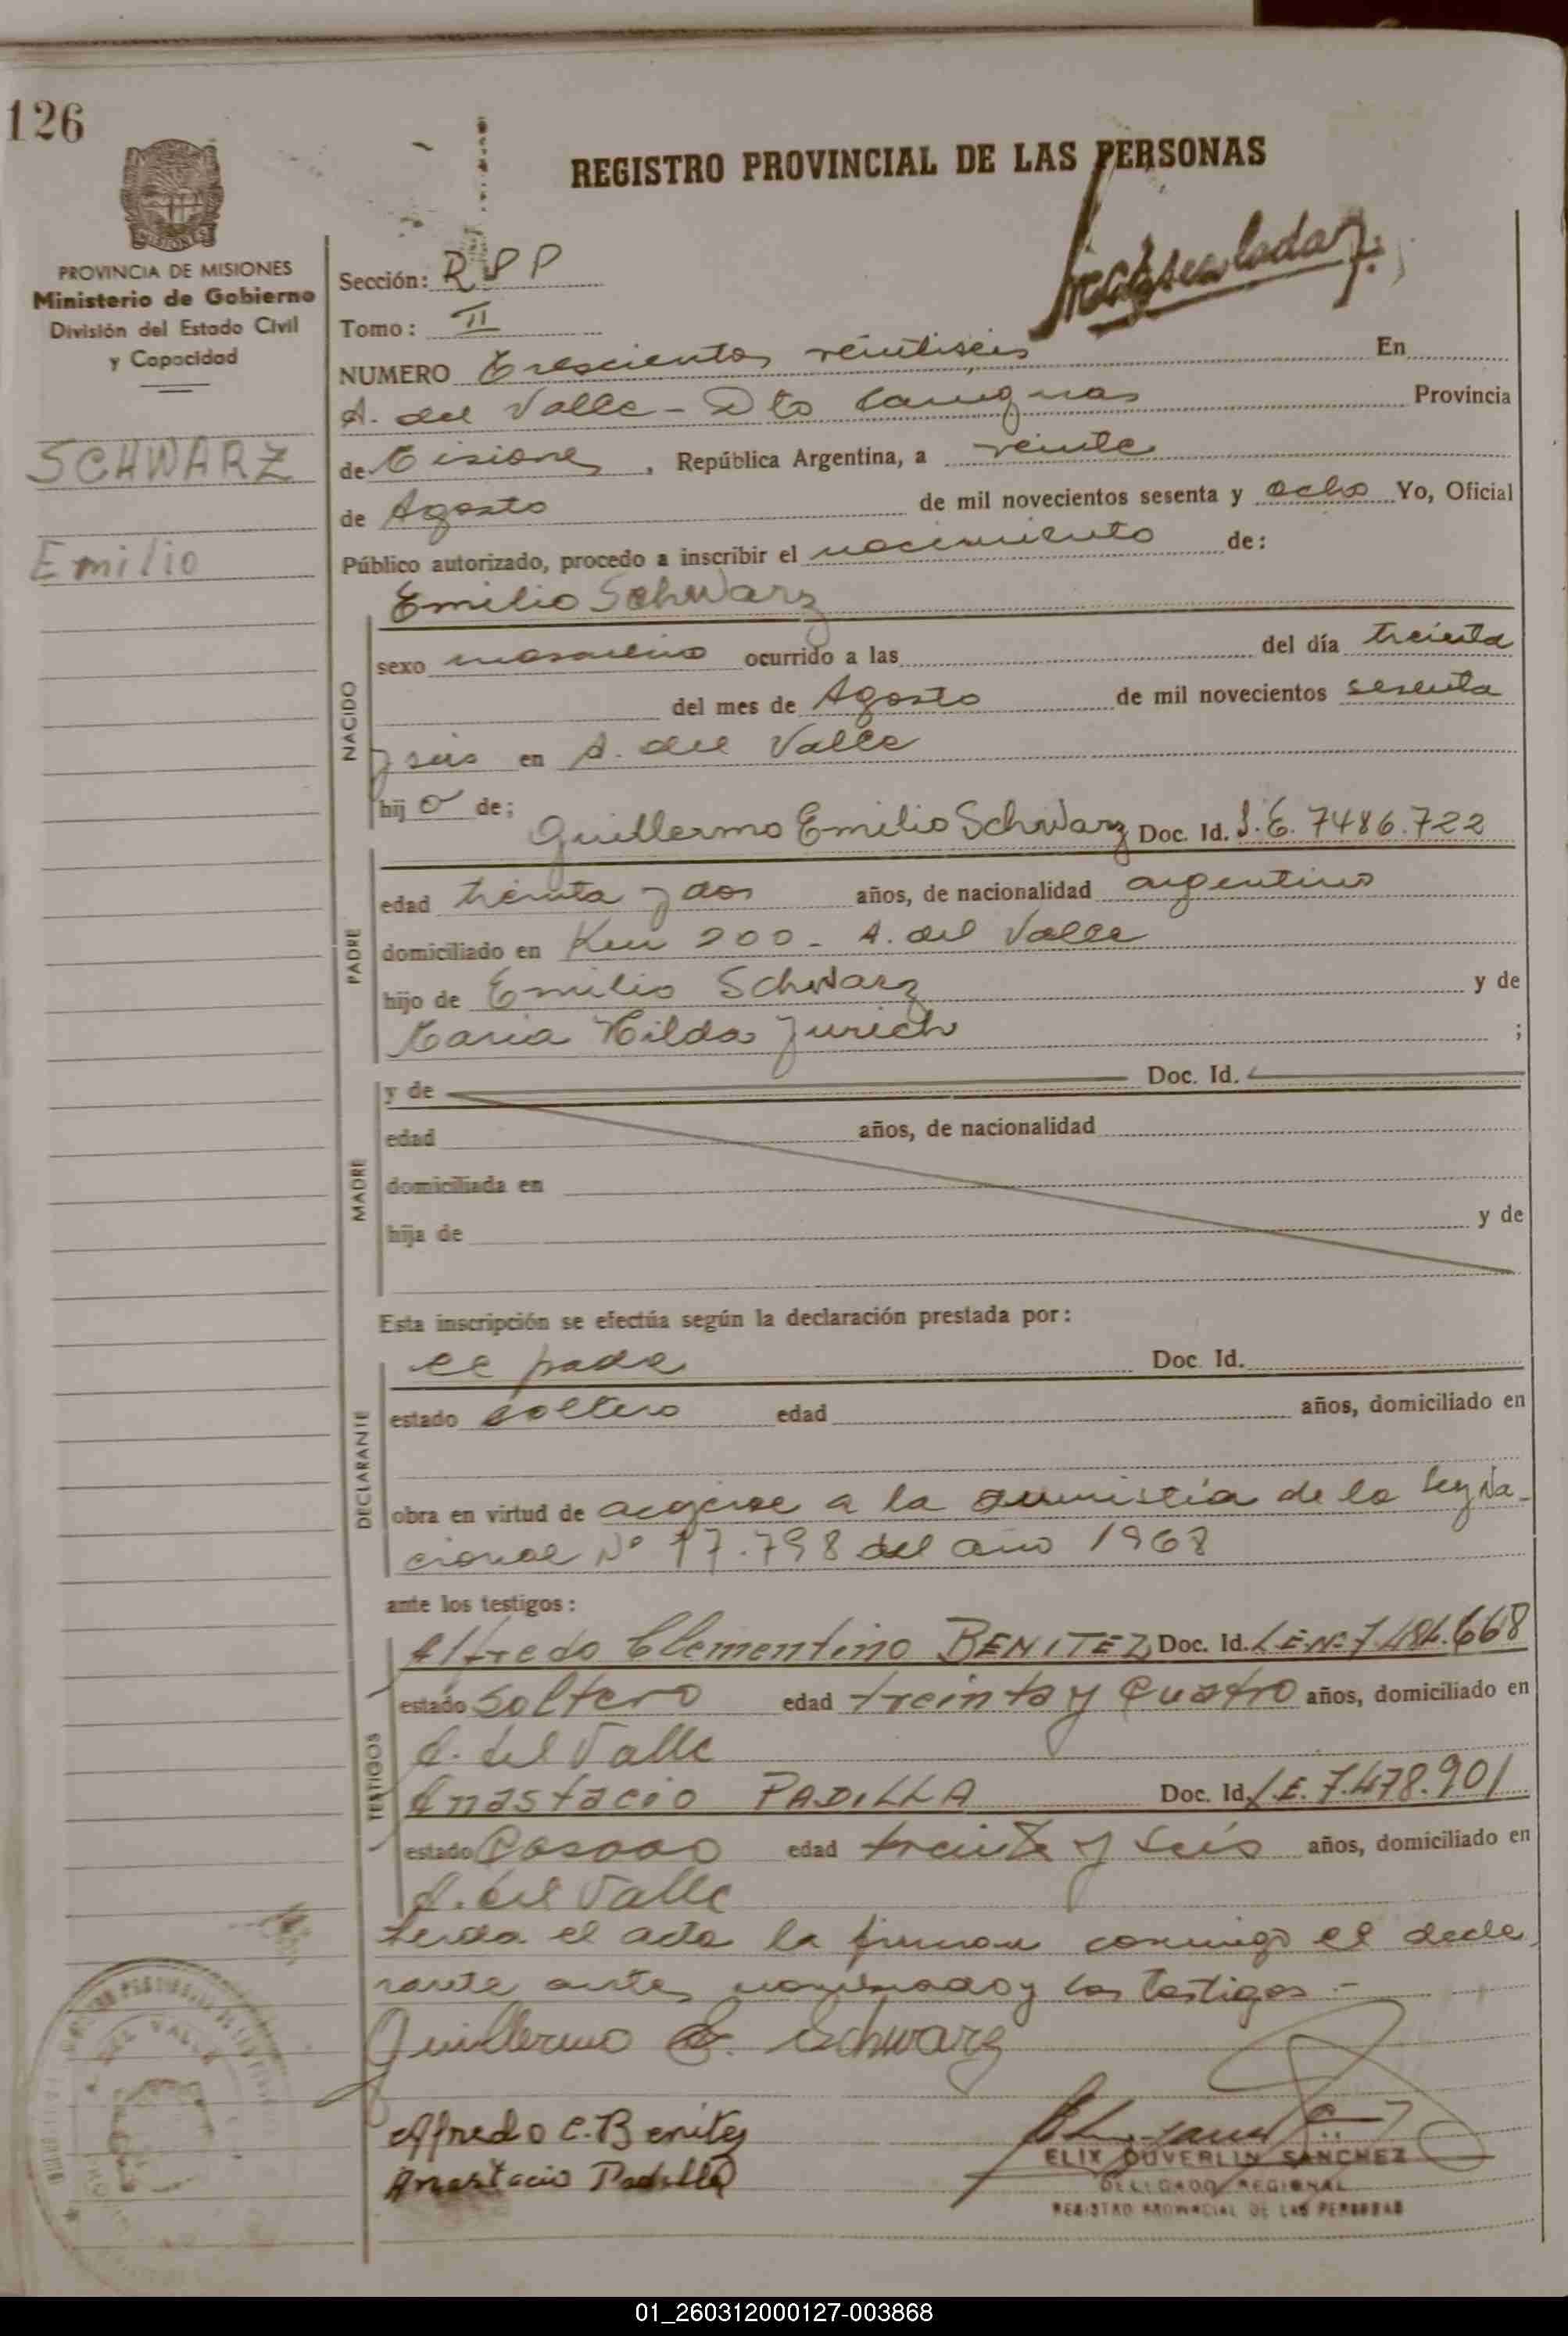 126
REGISTRO PROVINCIAL DE LAS PERSONAS
MISIONES
PROVINCIA DE MISIONES
Ministerio de Gobierno
División del Estado Civil
y Capacidad
SCHWARZ
Emilio
Sección: R P P
Tomo: II
NUMERO Trescientos veintiseis En
A. del Valle - Dto Cainguas Provincia
de Misiones, República Argentina, a veinte
de Agosto de mil novecientos sesenta y ocho Yo, Oficial
Público autorizado, procedo a inscribir el nacimiento de:
Emilio Schwarz
NACIDO
sexo masculino ocurrido a las del día treinta
del mes de Agosto de mil novecientos sesenta
y seis en A. del Valle
hijo de;
Guillermo Emilio Schwarz Doc. Id. L.E. 7486.722
PADRE
edad treinta y dos años, de nacionalidad argentino
domiciliado en Km 200 - A. del Valle
hijo de Emilio Schwarz y de
Maria Hilda Jurich ;
MADRE
y de Doc. Id.
edad años, de nacionalidad
domiciliada en
hija de y de
Esta inscripción se efectúa según la declaración prestada por:
DECLARANTE
el padre Doc. Id.
estado soltero edad años, domiciliado en
obra en virtud de acogerse a la amnistía de la Ley Na-
cional Nº 17.798 del año 1968
ante los testigos:
TESTIGOS
Alfredo Clementino BENITEZ Doc. Id. L.E.Nº 7.484.668
estado soltero edad treinta y cuatro años, domiciliado en
A. del Valle
Anastacio PADILLA Doc. Id. L.E. 7.478.901
estado Casado edad treinta y seis años, domiciliado en
A. del Valle
Leida el acta la firman conmigo el decla
rante antes nombrado y los testigos -
Guillermo E. Schwarz
Alfredo C. Benitez
Anastacio Padilla
ELIX DUVERLIN SANCHEZ
DELEGADO REGIONAL
REGISTRO PROVINCIAL DE LAS PERSONAS
01_260312000127-003868